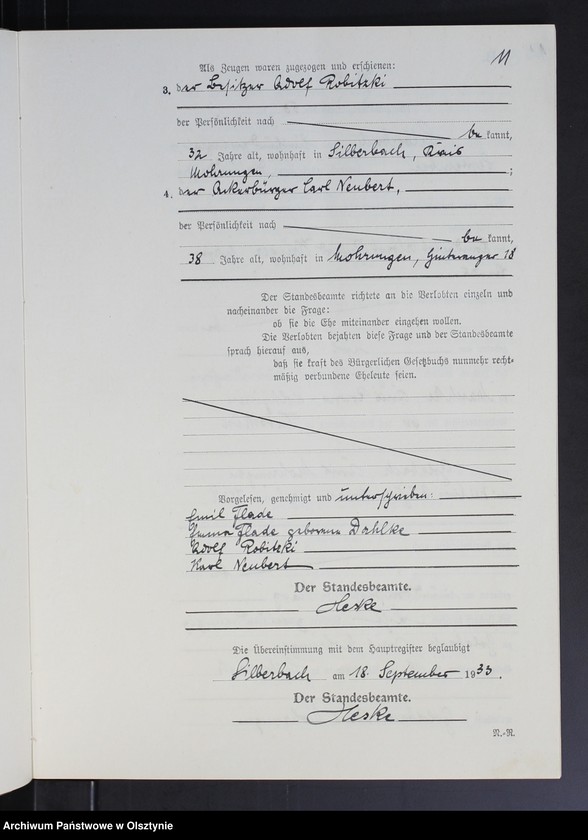 11
Als Zeugen waren zugezogen und erschienen:
3. der Besitzer Adolf Robitzki
der Persönlichkeit nach
be kannt,
32 Jahre alt, wohnhaft in Silberbach, Kreis
Mohrungen, ;
4. der Ackerbürger Carl Neubert,
der Persönlichkeit nach
be kannt,
38 Jahre alt, wohnhaft in Mohrungen, Hinteranger 18
Der Standesbeamte richtete an die Verlobten einzeln und
nacheinander die Frage:
ob sie die Ehe miteinander eingehen wollen.
Die Verlobten bejahten diese Frage und der Standesbeamte
sprach hierauf aus,
daß sie kraft des Bürgerlichen Gesetzbuchs nunmehr recht-
mäßig verbundene Eheleute seien.
Vorgelesen, genehmigt und unterschrieben:
Emil Flade
Emma Flade geborene Dahlke
Adolf Robitzki
Karl Neubert
Der Standesbeamte.
Heske
Die Übereinstimmung mit dem Hauptregister beglaubigt
Silberbach am 18. September 1933.
Der Standesbeamte.
Heske
N.-R.
Archiwum Państwowe w Olsztynie